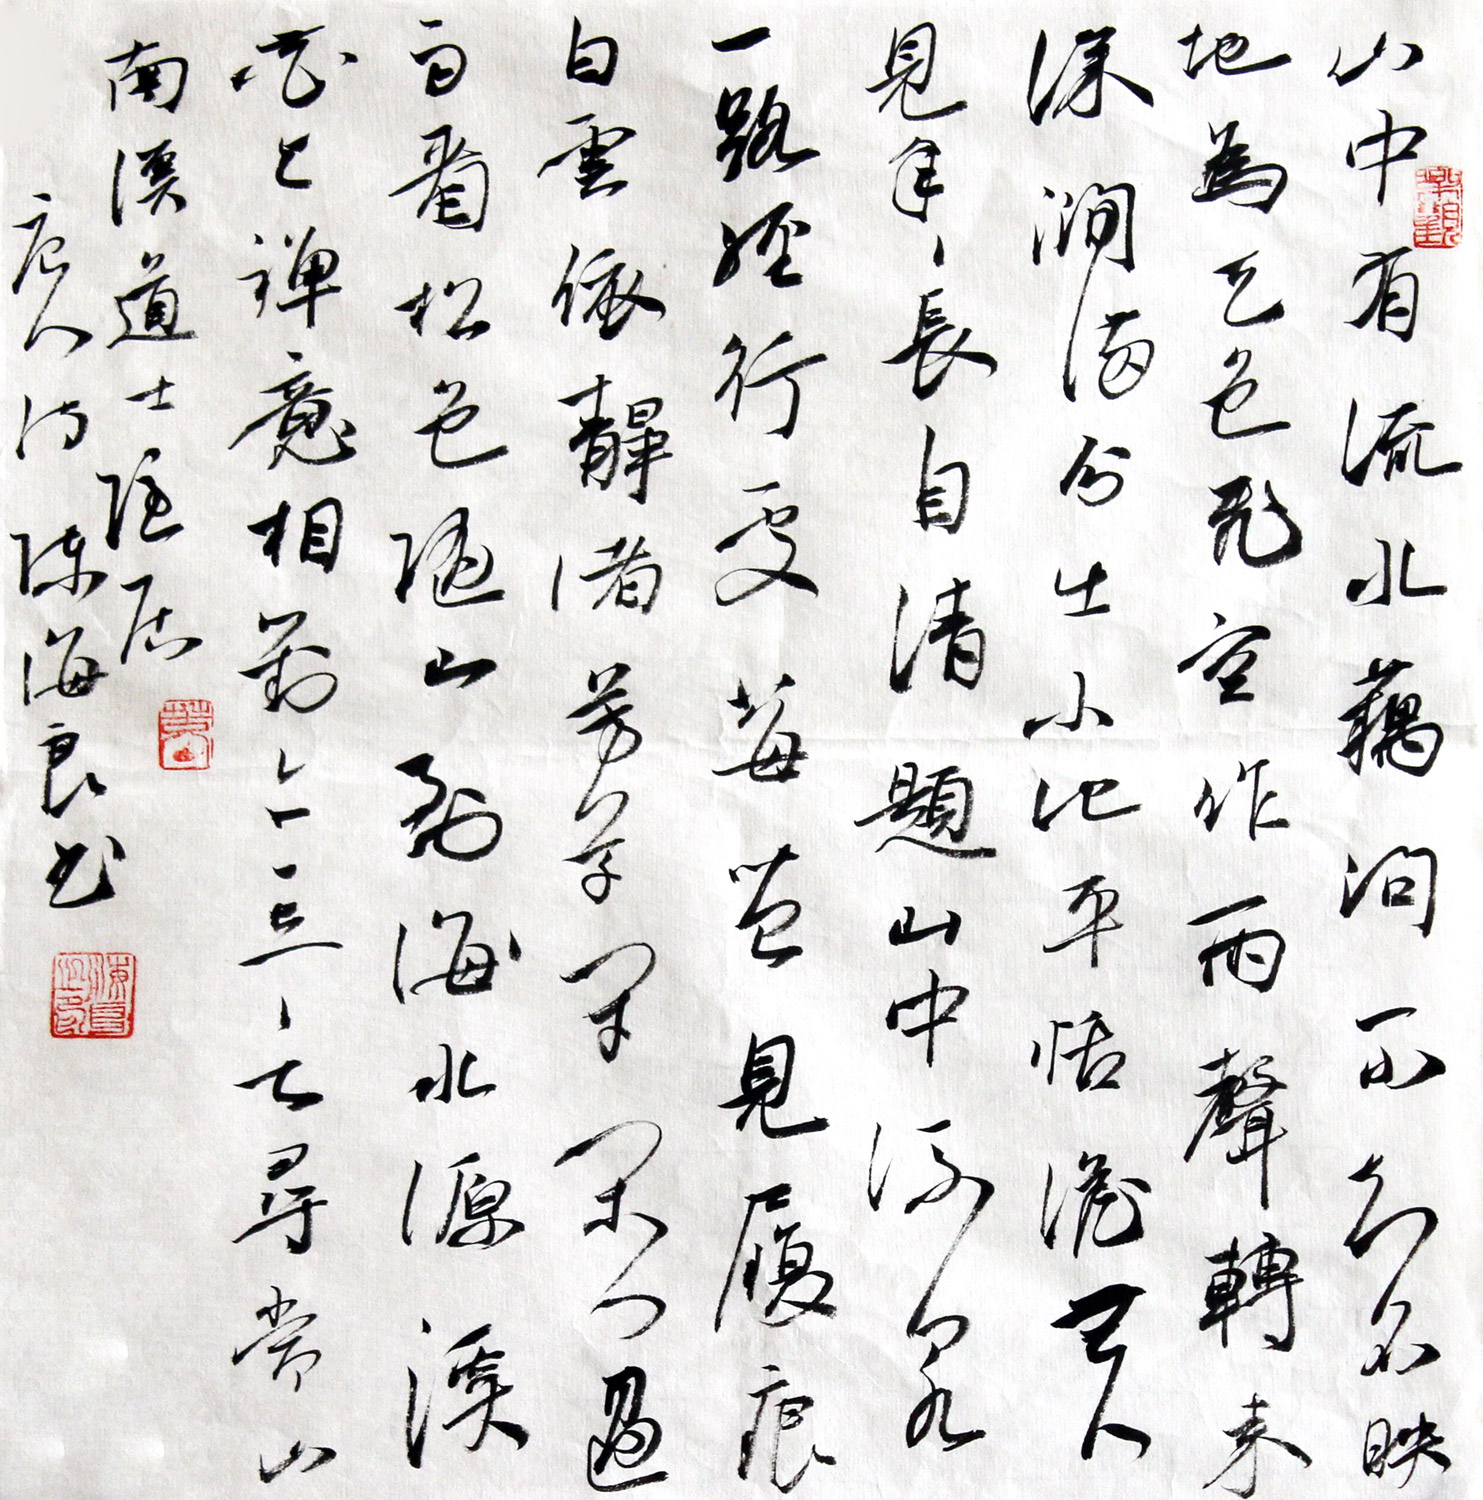 山中有流水藕問不知名映
地為天色飛空作雨聲轉來
深澗滿分出小池平恬澹無人
見年、長自清題山中流泉
一路經行處莓苔見履痕
白雲依靜渚芳草閉閑門過
雨看松色隨山到海水源溪
花與禪意相對亦言、亡尋常山
南溪道士隱居
唐人詩陳海良書